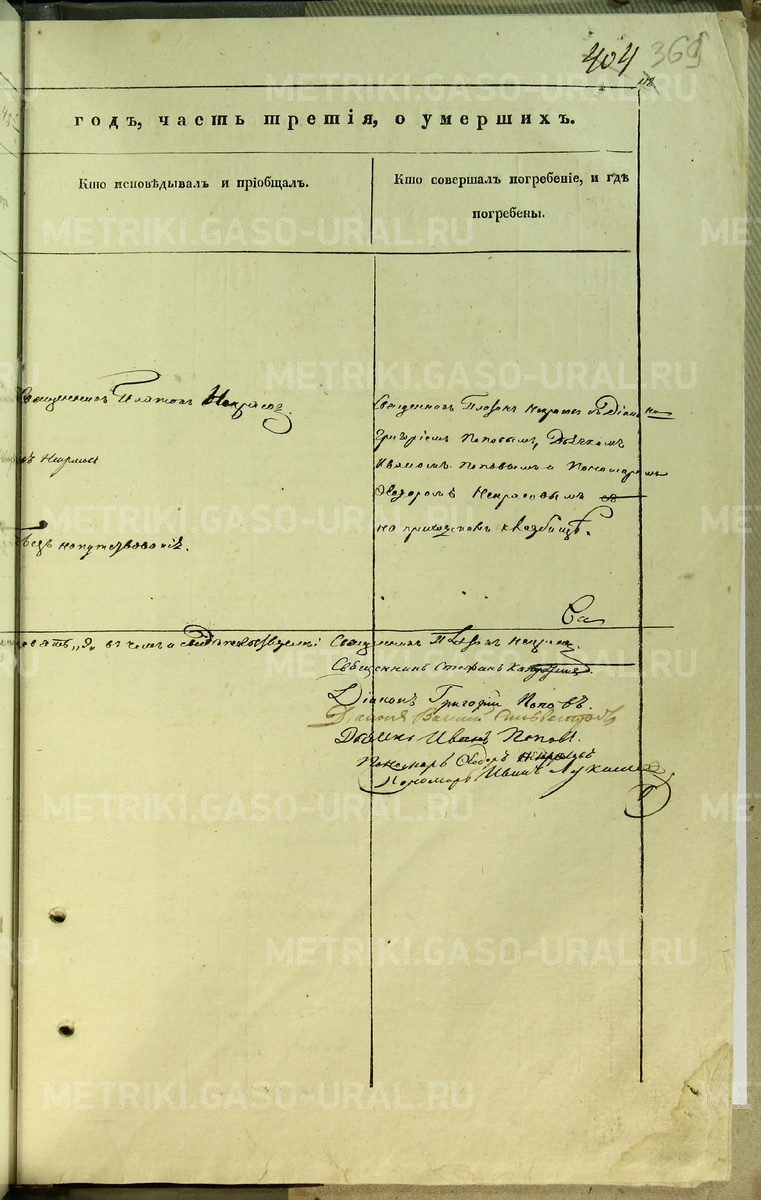 404 369
годъ, часть третія, о умершихъ.
Кто исповѣдывалъ и пріобщалъ.
Кто совершалъ погребеніе, и гдѣ
погребены.
Священникъ Платонъ Некрасов
Священникъ Платонъ Некрасов съ Діаконо
Григоріемъ Поповымъ, Дьячкомъ
Иваномъ Поповымъ и Пономаремъ
Ѳедоромъ Некрасовымъ
на приходскомъ кладбищѣ.
безъ напутствованія.
въ чемъ и свидѣтельствуемъ: Священникъ Платонъ Некрасов
Священникъ Стефанъ
Діаконъ Григорій Поповъ.
Діаконъ
Дьячекъ Иванъ Поповъ.
Пономарь Ѳедоръ Некрасовъ
Пономарь Иванъ
METRIKI.GASO-URAL.RU